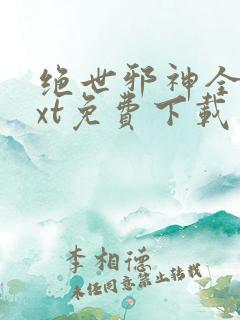 绝世邪神全
xt免费下载
李相德
未经同意禁止转载